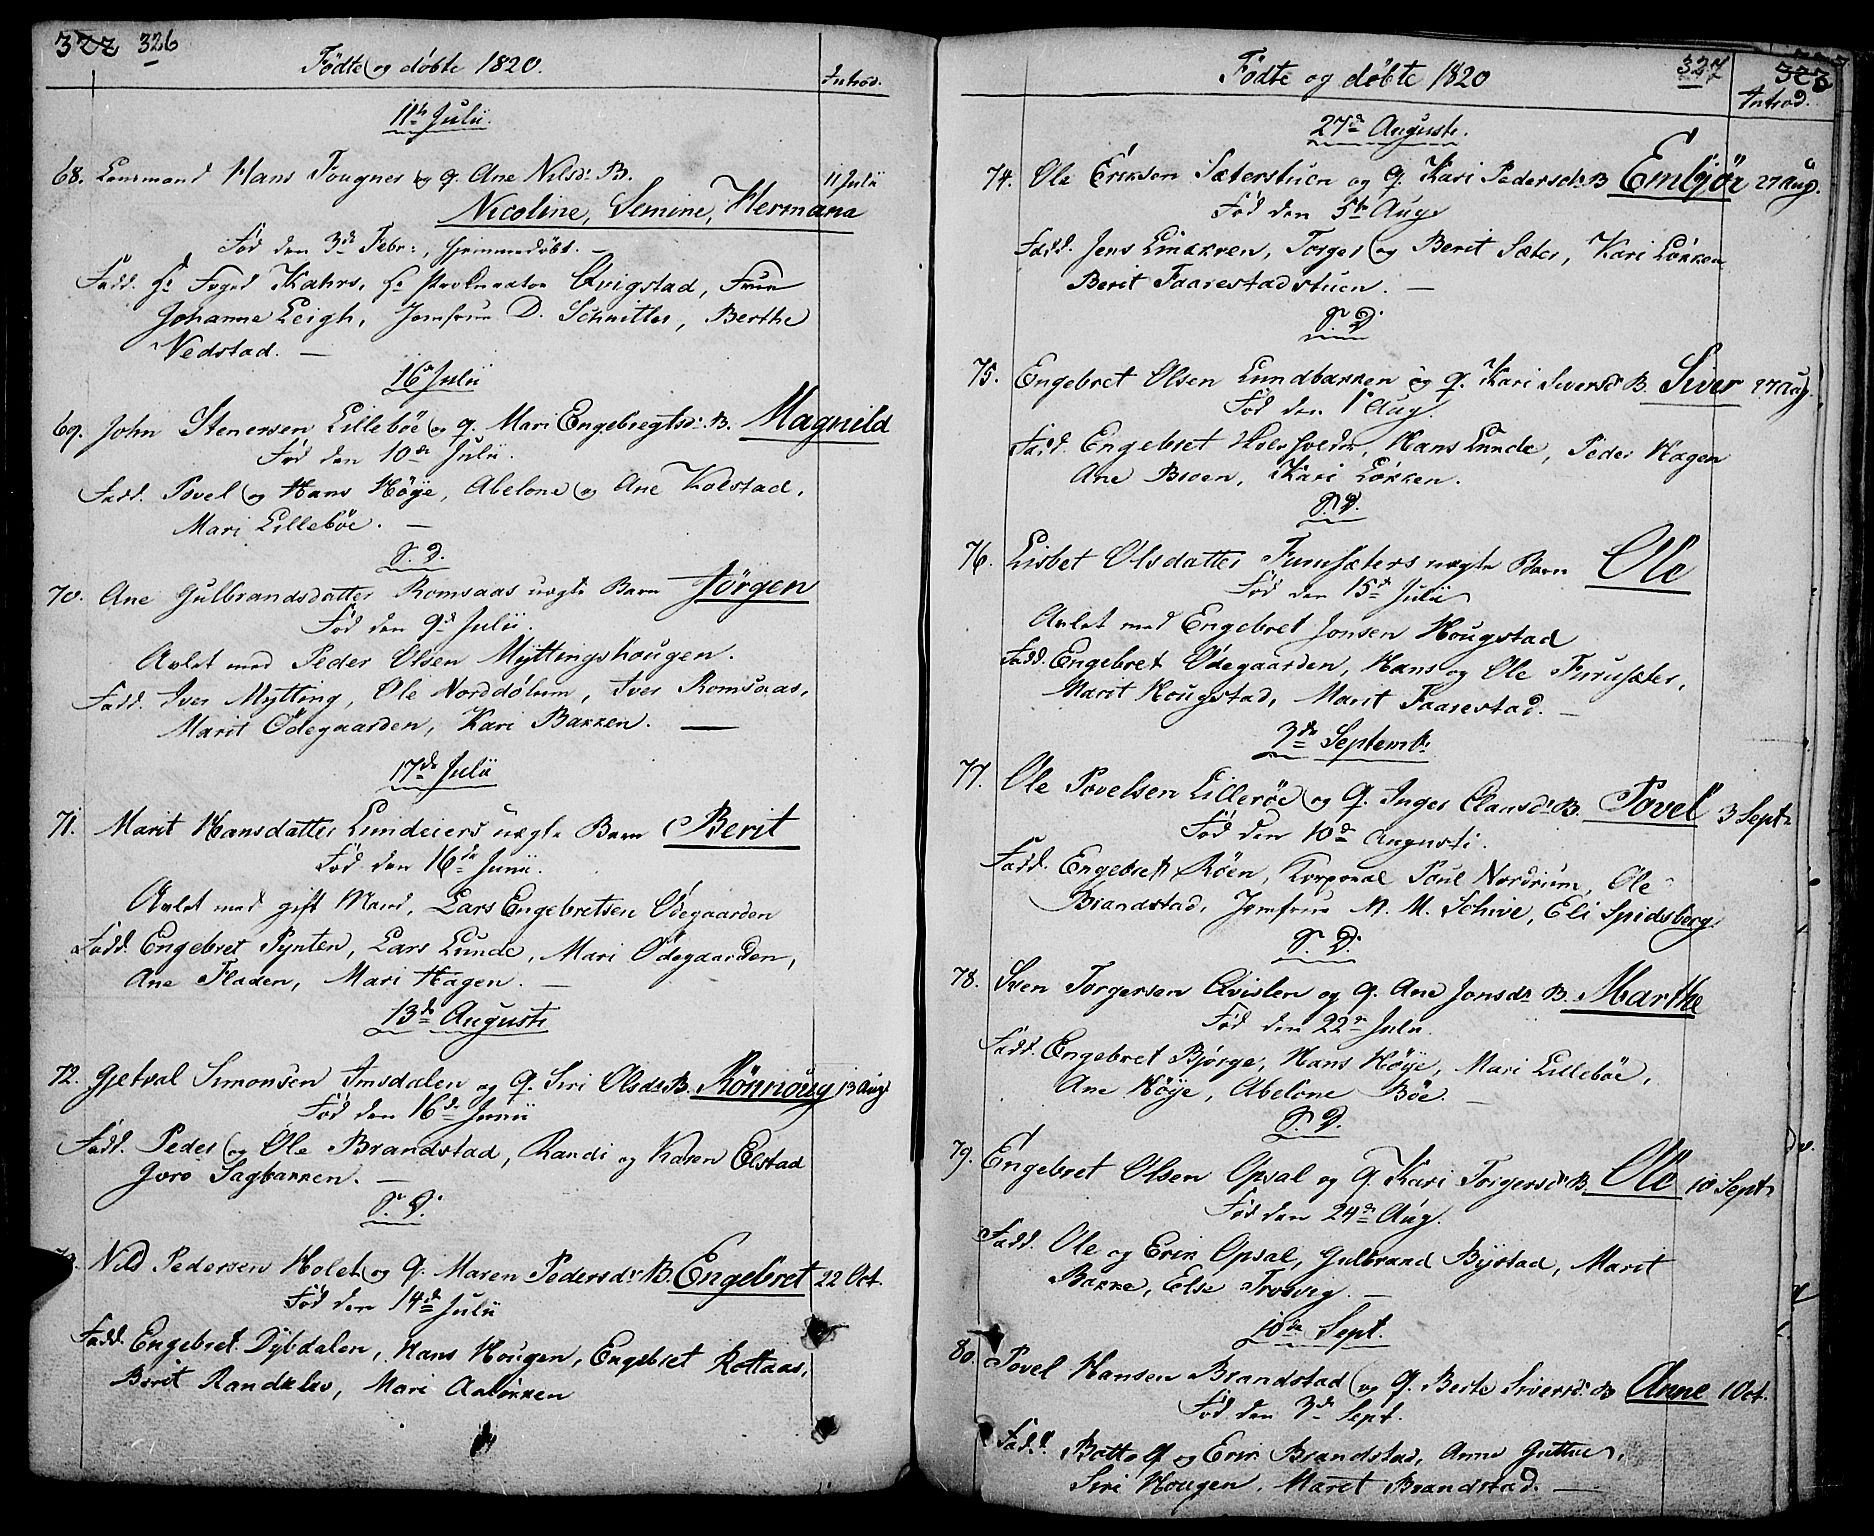 322 326
Fødte og døbte 1820.
Introd.
11te Julii.
68. Lensmand Hans Fougner og q. Ane Nilsd. B. 11 Julii
Nicoline, Semine, Hermana
Fød den 3de Febr:, hjemmedøbt. –
Fadd. Hr Foged Kahrs, Hr Prokurator Qvigstad, Frue
Johanne Leigh, Jomfrue D. Schnitler, Berthe
Nedstad. –
16 Julii
69. John Stenersen Lillebøe og q. Mari Engebregtsd. B. Magnild
Fød den 10de Julii.
Fadd. Povel og Hans Høye, Abelone og Ane Kolstad,
Mari Lillebøe. –
S. D.
70. Ane Gulbrandsdatter Romsaas uægte Barn Jörgen
Fød den 9de Julii.
Avlet med Peder Olsen Myttingshougen.
Fadd. Iver Mytting, Ole Norddølum, Iver Romsaas,
Marit Ödegaarden, Kari Bakken. —
17de Julii
71. Marit Hansdatter Lundeiers uægte Barn Berit
Fød den 16de Junii.
Avlet med gift Mand, Lars Engebretsen Ødegaarden
Fadd. Engebret Pynten, Lars Lunde, Mari Ödegaarden,
Ane Fladen, Mari Hagen. –
13de Augusti
72. Gjetval Simonsen Imsdalen og q. Siri Olsdr B. Rönnoug 13 Aug
Fød den 16de Junii
Fadd. Peder og Ole Brandstad, Randi og Karen Elstad
Joro Sagbakken. –
S. D.
Nils Pedersen Holet og q. Maren Pedersdr B. Engebret 22 Oct.
Fød den 14de Julii
Fadd. Engebret Dybdalen, Hans Hougen, Engebret Rottaas,
Berit Randklev, Mari Aaløkken
Fødte og døbte 1820
327 323
Introd.
27de Augusti.
74. Ole Eriksen Sæterstuen og q. Kari Pedersdr B Embjör 27 Aug.
Fød den 5te Aug.
Fadd. Jens Linakren, Torger og Berit Sæter, Kari Løkken
Berit Faarestadstuen. –
S. D.
75. Engebret Olsen Lundbakken og q. Kari Siversdr B. Siver 27 Aug.
Fød den 1 Aug.
Fadd. Engebret, Hans Lunde, Peder Hagen
Ane Broen, Kari Løkken.
S. D.
76. Lisbet Olsdatter Furusæters uægte Barn Ole
Fød den 15de Julii
Avlet med Engebret Jonsen Hougstad
Fadd. Engebret Ødegaarden, Hans og Ole Furusæter,
Marit Hougstad, Marit Faarestad. –
3de Septembr
77. Ole Povelsen Lillerøe og q. Inger Clausdr B. Povel 3 Sept.
Fød den 10de Augusti.
Fadd. Engebret Röen, Korporal Poul Nordrum, Ole
Brandstad, Jomfrue M. M. Schive, Eli Spidsberg.
S. D.
78. Sven Torgersen Qvislen og q. Ane Jonsdr B. Marthe
Fød den 22de Julii.
Fadd. Engebret Bjørge, Hans Høye, Mari Lillebøe,
Ane Høye, Abelone Bøe. –
S. D.
79. Engebret Olsen Opsal og q. Kari Torgersdr B. Ole 10 Sept.
Fød den 24de Aug.
Fadd. Ole og Erik Opsal, Gulbrand Bystad, Marit
Bakke, Else Trosvig. –
10de Sept.
80. Povel Hansen Brandstad og q. Berte Siversd. B Anne 1 Oct.
Fød den 3de Sept.
Fadd. Bottolf og Erik Brandstad, Anne Guttue,
Siri Hougen, Maret Brandstad. —